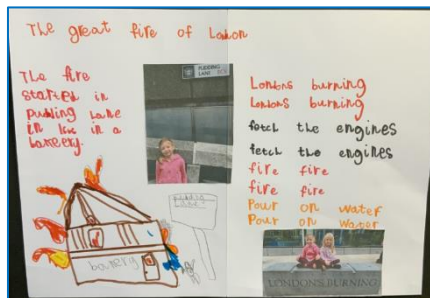 The great fire of London
The fire
started in
pudding lane
in
in a
PUDDING
LANE EC3
Londons burning
Londons burning
fetch the engines
fetch the engines
fire fire
fire fire
Pour on water
Pour on water
LONDON'S BURNING